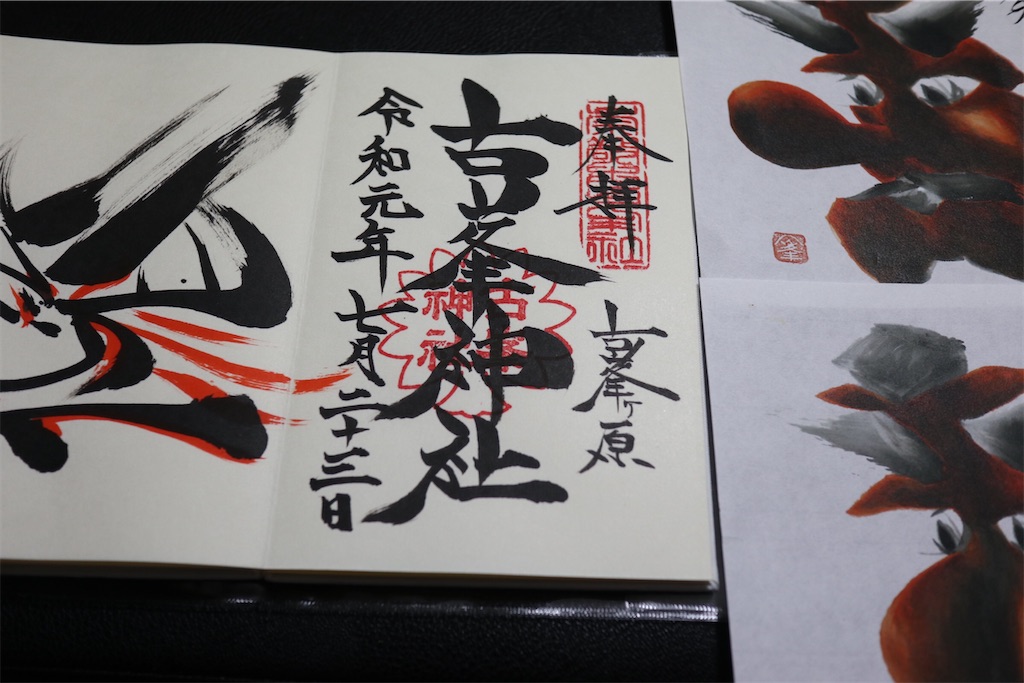 奉拝
古峯ヶ原
古峯神社
古峯
神社
令和元年七月二十三日